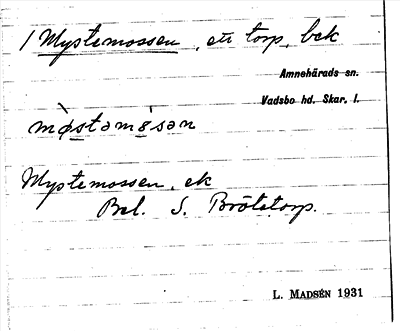 1 Mystemossen, ett torp, bek
Amnehärads sn.
Vadsbo hd. Skar. l.
mø̀stəmɵ̀sən
Mystemossen, ek
Bel. S. Brötetorp.
L. MADSÉN 1931